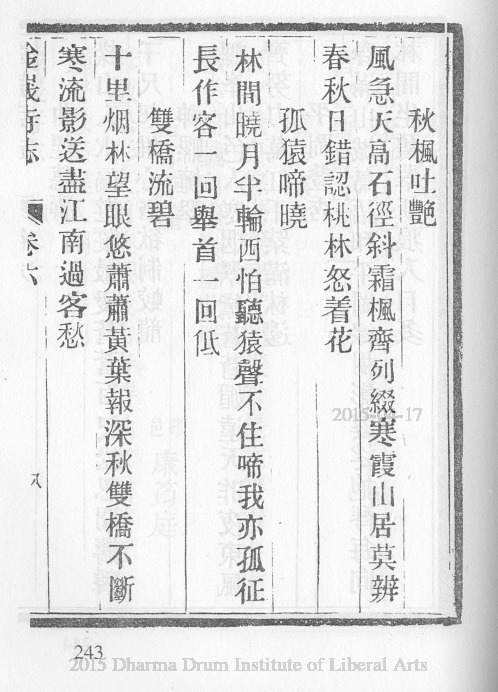 秋楓吐艷
風急天高石徑斜霜楓齊列綴寒霞山居莫辨
春秋日錯認桃林怒着花
孤猿啼曉
林間曉月半輪西怕聽猿聲不住啼我亦孤征
長作客 回舉首一回低
雙橋流碧
十里烟林望眼悠蕭蕭黃葉報深秋雙橋不斷
寒流影送盡江南過客愁
卷六
243
2015-04-17
2015 Dharma Drum Institute of Liberal Arts